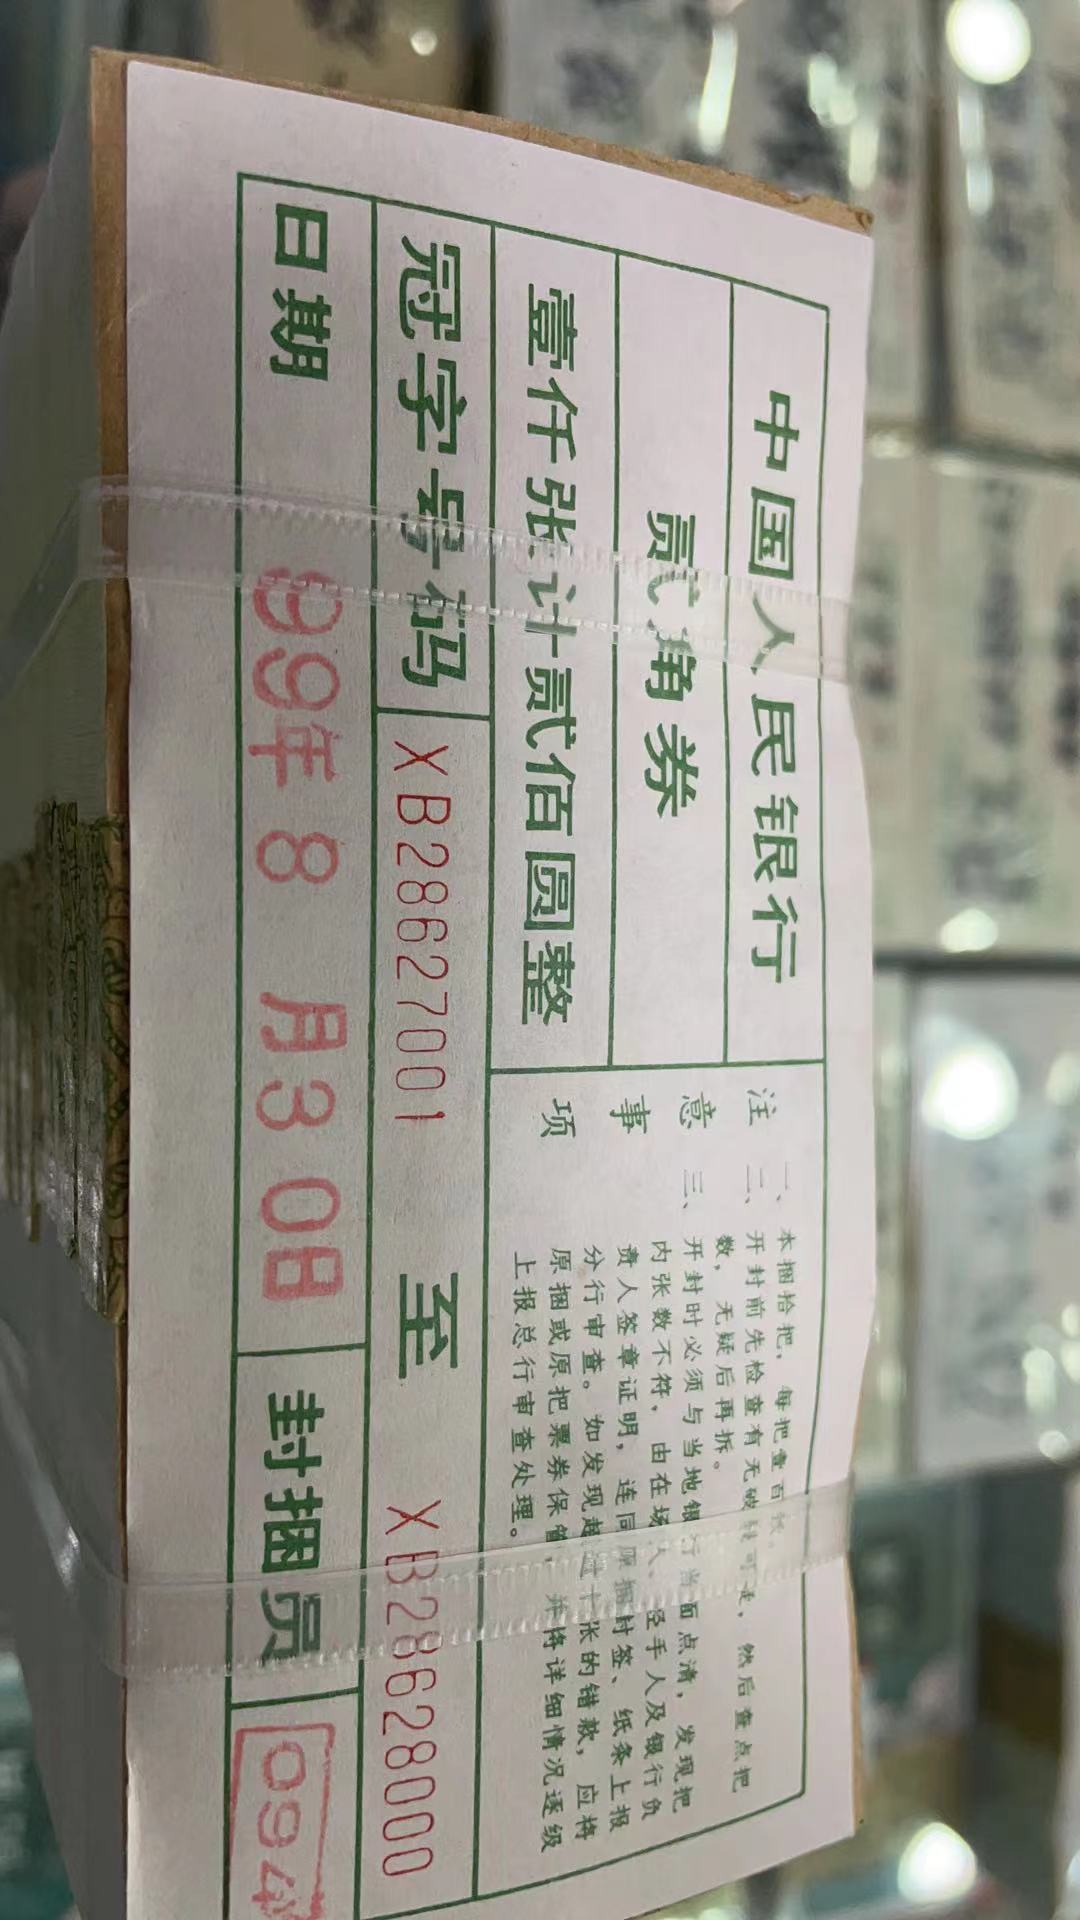 中国人民银行
贰角券
壹仟张计贰佰圆整
注意事项
一、本捆拾把，每把壹百张。
二、开封前先检查有无破裂可疑，然后查点把
数，无疑后再拆。
三、开封时必须与当地银行当面点清，发现把
内张数不符，由在场人、经手人及银行负
责人签章证明，连同原捆封签、纸条上报
分行审查。如发现超过十张的错款，应将
原捆或原把票券保管，并将详细情况逐级
上报总行审查处理。
冠字号码 XB28627001 至 XB28628000
日期 99年8月30日 封捆员 094